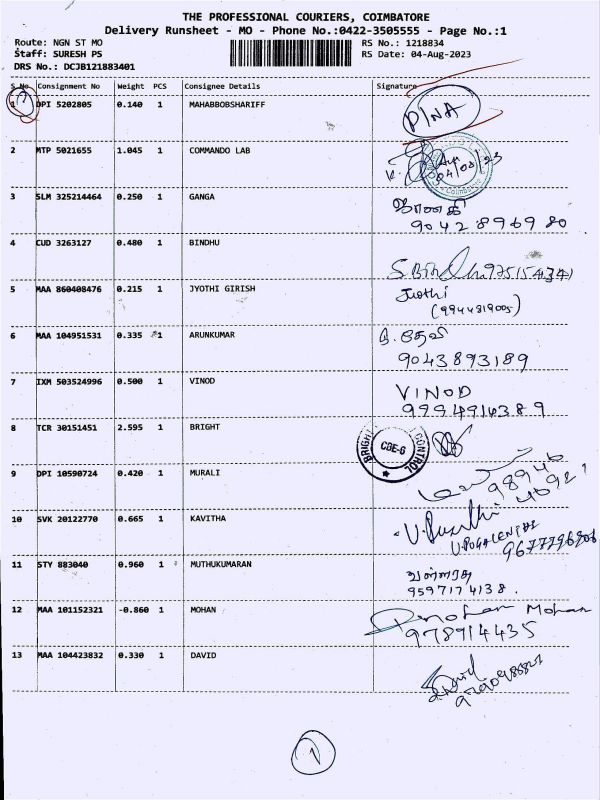 THE PROFESSIONAL COURIERS, COIMBATORE
Delivery Runsheet - MO - Phone No.:0422-3505555 - Page No.:1
Route: NGN ST MO RS No.: 1218834
Staff: SURESH PS RS Date: 04-Aug-2023
DRS No.: DCJB121883401
S.No Consignment No Weight PCS Consignee Details Signature
1 DPI 5202805 0.140 1 MAHABBOBSHARIFF
2 MTP 5021655 1.045 1 COMMANDO LAB
04/08/23
Coimbatore
3 SLM 325214464 0.250 1 GANGA
ஜானகி
9042896980
4 CUD 3263127 0.480 1 BINDHU
5 MAA 860408476 0.215 1 JYOTHI GIRISH Jyothi
(9944819005)
6 MAA 104951531 0.335 1 ARUNKUMAR
9043893189
7 IXM 503524996 0.500 1 VINOD VINOD
9994914389
8 TCR 30151451 2.595 1 BRIGHT BRIGHT CBE-G CONTROL
9 DPI 10590724 0.420 1 MURALI
10 SVK 20122770 0.665 1 KAVITHA
11 STY 883040 0.960 1 MUTHUKUMARAN
9597174138.
12 MAA 101152321 -0.860 1 MOHAN Mohan
978914435
13 MAA 104423832 0.330 1 DAVID
1